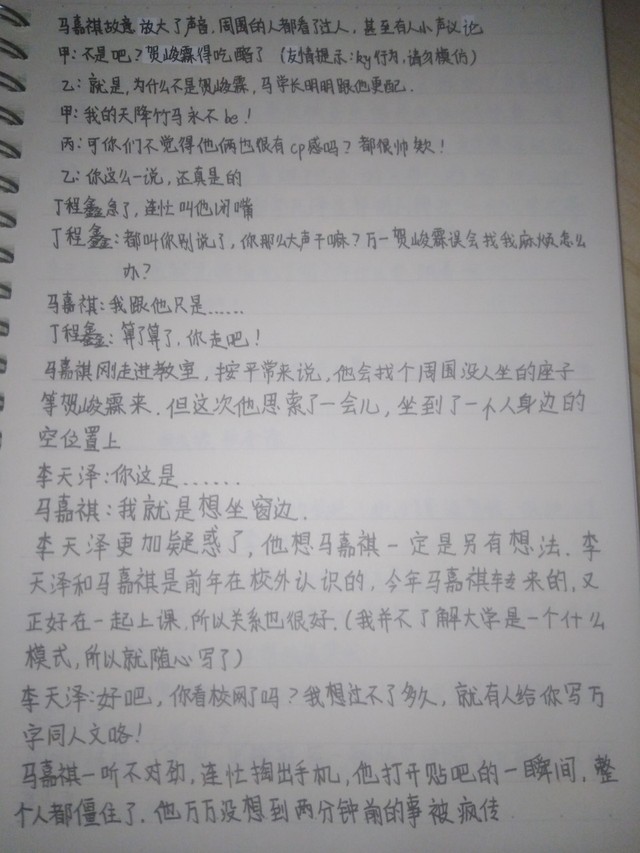 马嘉祺故意放大了声音，周围的人都看了过人，甚至有人小声议论
甲：不是吧？贺峻霖得吃醋了（友情提示：ky行为，请勿模仿）
乙：就是，为什么不是贺峻霖，马学长明明跟他更配.
甲：我的天降竹马永不be！
丙：可你们不觉得他俩也很有cp感吗？都很帅欸！
乙：你这么一说，还真是的
丁程鑫急了，连忙叫他闭嘴
丁程鑫：都叫你别说了，你那么大声干嘛？万一贺峻霖误会找我麻烦怎么
办？
马嘉祺：我跟他只是……
丁程鑫：算了算了，你走吧！
马嘉祺刚走进教室，按平常来说，他会找个周围没人坐的座子
等贺峻霖来.但这次他思索了一会儿，坐到了一个人身边的
空位置上
李天泽：你这是……
马嘉祺：我就是想坐窗边.
李天泽更加疑惑了，他想马嘉祺一定是另有想法.李
天泽和马嘉祺是前年在校外认识的，今年马嘉祺转来的，又
正好在一起上课.所以关系也很好.（我并不了解大学是一个什么
模式，所以就随心写了）
李天泽：好吧，你看校网了吗？我想过不了多久，就有人给你写万
字同人文咯！
马嘉祺一听不对劲，连忙掏出手机，他打开贴吧的一瞬间，整
个人都僵住了.他万万没想到两分钟前的事被疯传.